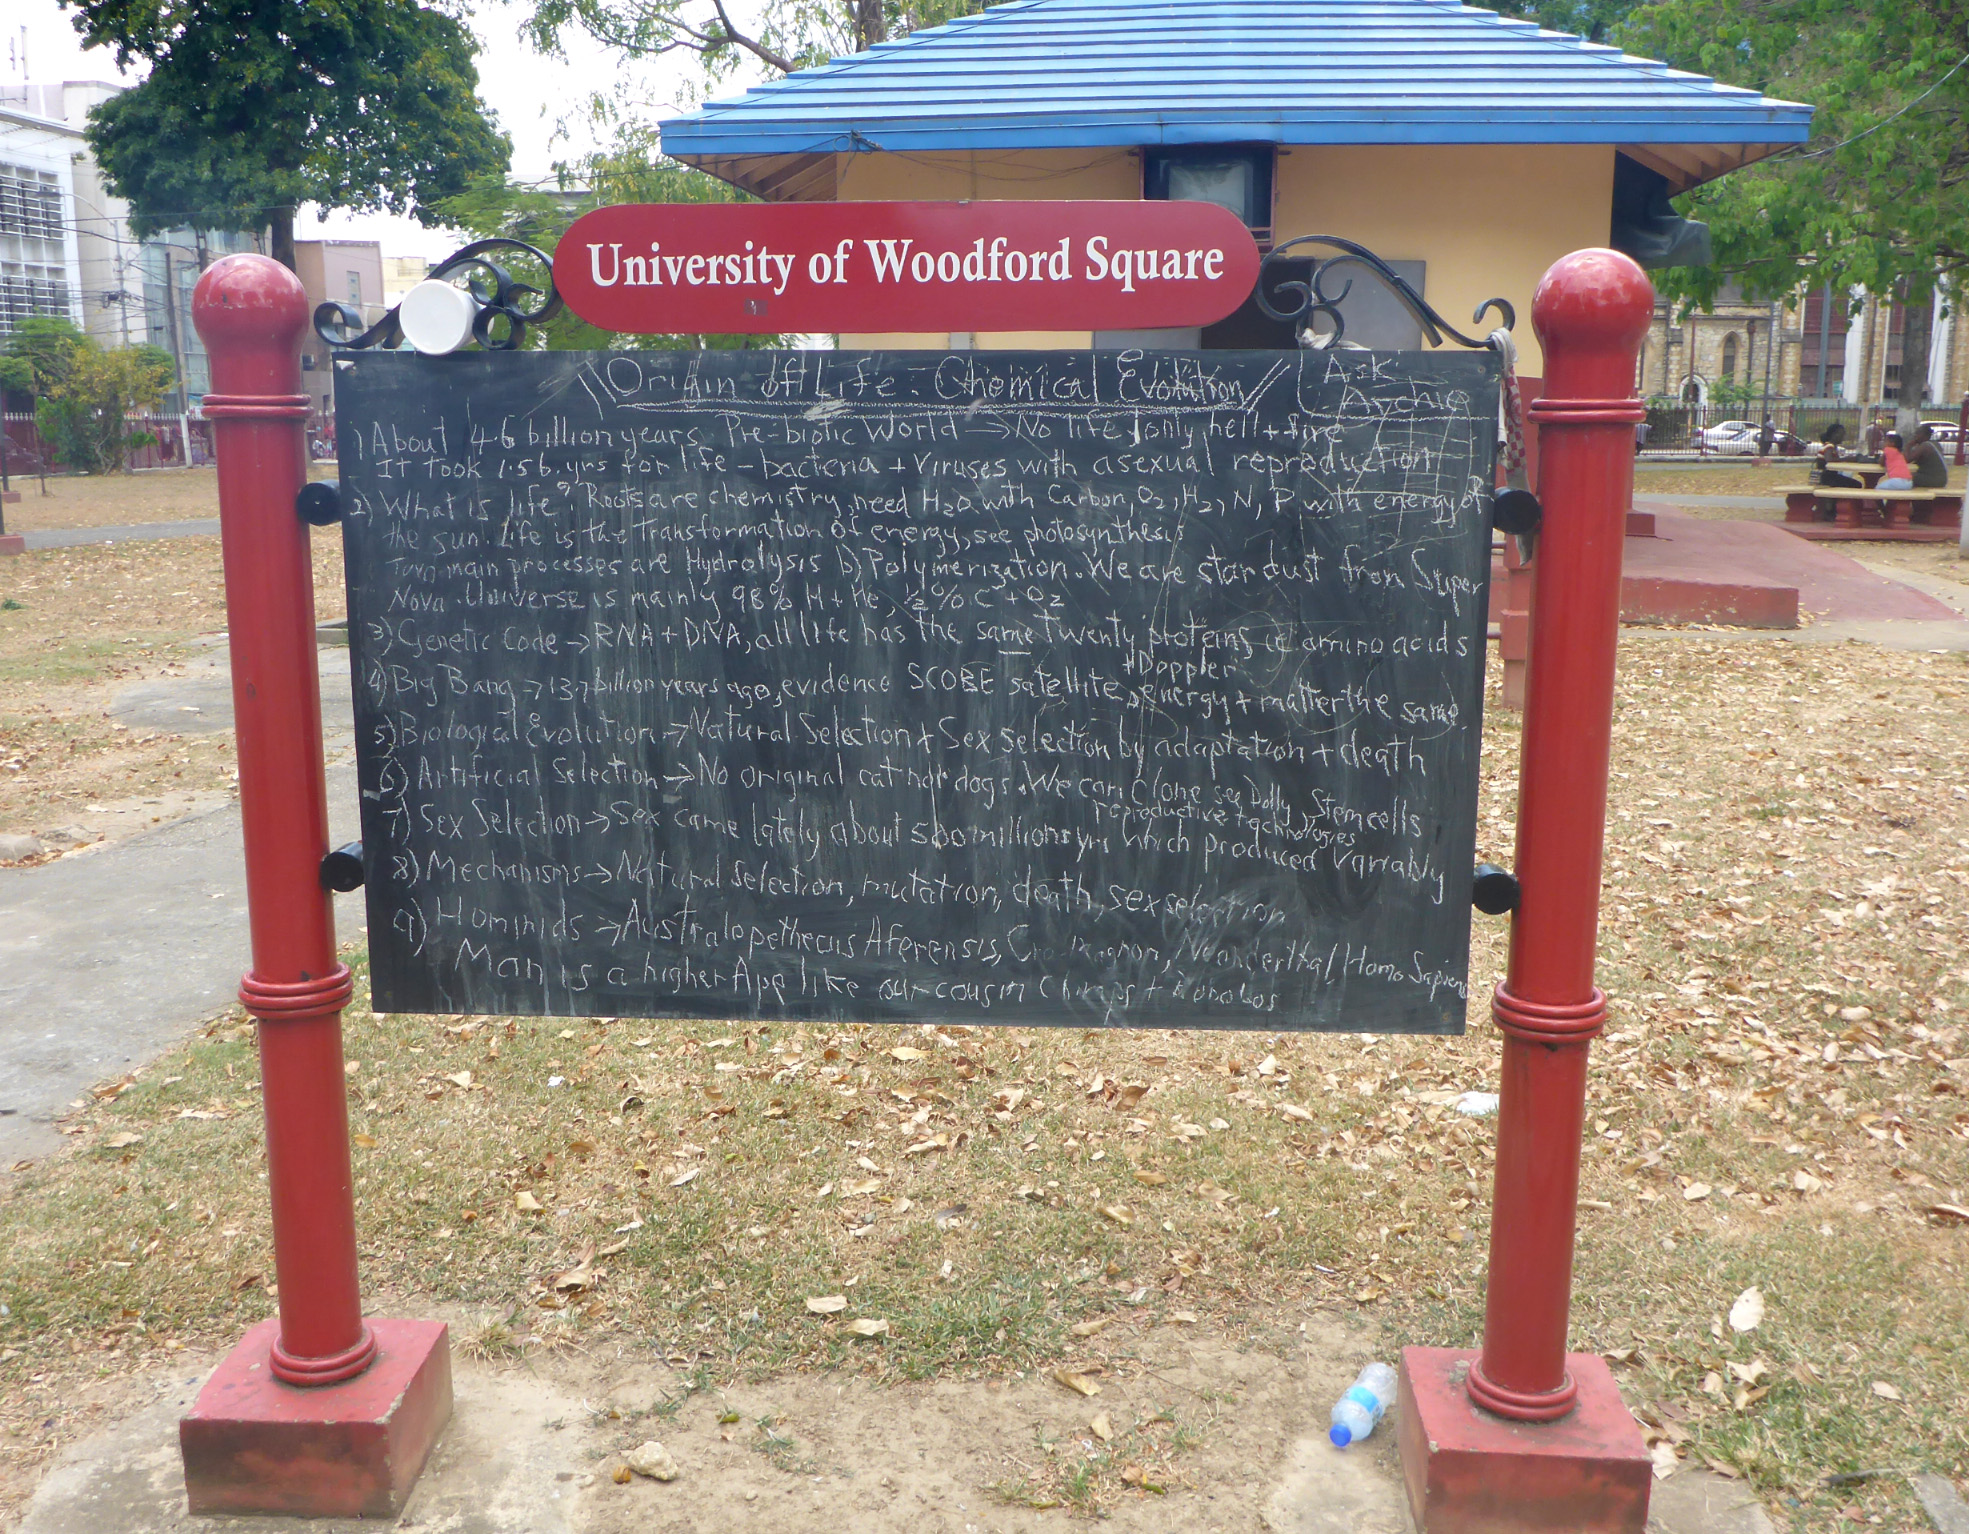 University of Woodford Square
Origin of Life : Chemical Evolution
Ask
Archie
1) About 4.6 billion years Pre-biotic World → No life, only hell + fire
It took 1.5 b. yrs for life - bacteria + Viruses with asexual reproduction
2) What is life? Roots are chemistry, need H2O with Carbon, O2, H2, N, P with energy of
the sun. Life is the Transformation of energy, see photosynthesis
main processes are Hydrolysis b) Polymerization. We are star dust from Super
Nova. Universe is mainly 98% H + He, ½% C + O2
3) Genetic Code → RNA + DNA, all life has the same Twenty proteins, ie amino acids
+ Doppler
4) Big Bang → 13.7 billion years ago, evidence SCOBE satellite, energy + matter the same.
5) Biological Evolution → Natural Selection + Sex selection by adaptation + death
6) Artificial Selection → No original cat nor dogs. We can Clone see Dolly, Stemcells
reproductive technologies
7) Sex Selection → Sex came lately about 500 millions yrs which produced Variably
8) Mechanisms → Natural Selection, mutation, death, sex selection
9) Hominids → Australopethecus Aferensis, Cro-Magnon, Neanderthal, Homo Sapiens
Man is a higher App like our cousin Chimps + Bonobos